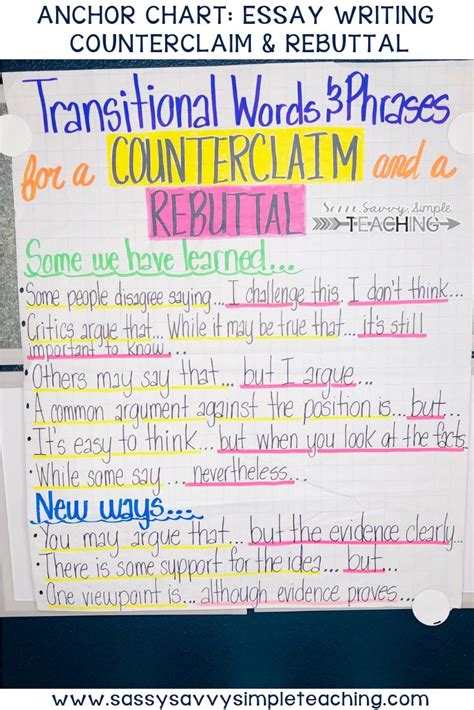 ANCHOR CHART: ESSAY WRITING
COUNTERCLAIM & REBUTTAL
Transitional Words & Phrases
for a COUNTERCLAIM and a
REBUTTAL
Savvy Simple
TEACHING
Some we have learned...
• Some people disagree saying... I challenge this. I don't think...
• Critics argue that... While it may be true that... it's still
important to know...
• Others may say that... but I argue...
• A common argument against the position is... but...
• It's easy to think... but when you look at the facts...
• While some say ... nevertheless...
New ways...
• You may argue that... but the evidence clearly...
• There is some support for the idea... but...
• One viewpoint is... although evidence proves...
www.sassysavvysimpleteaching.com